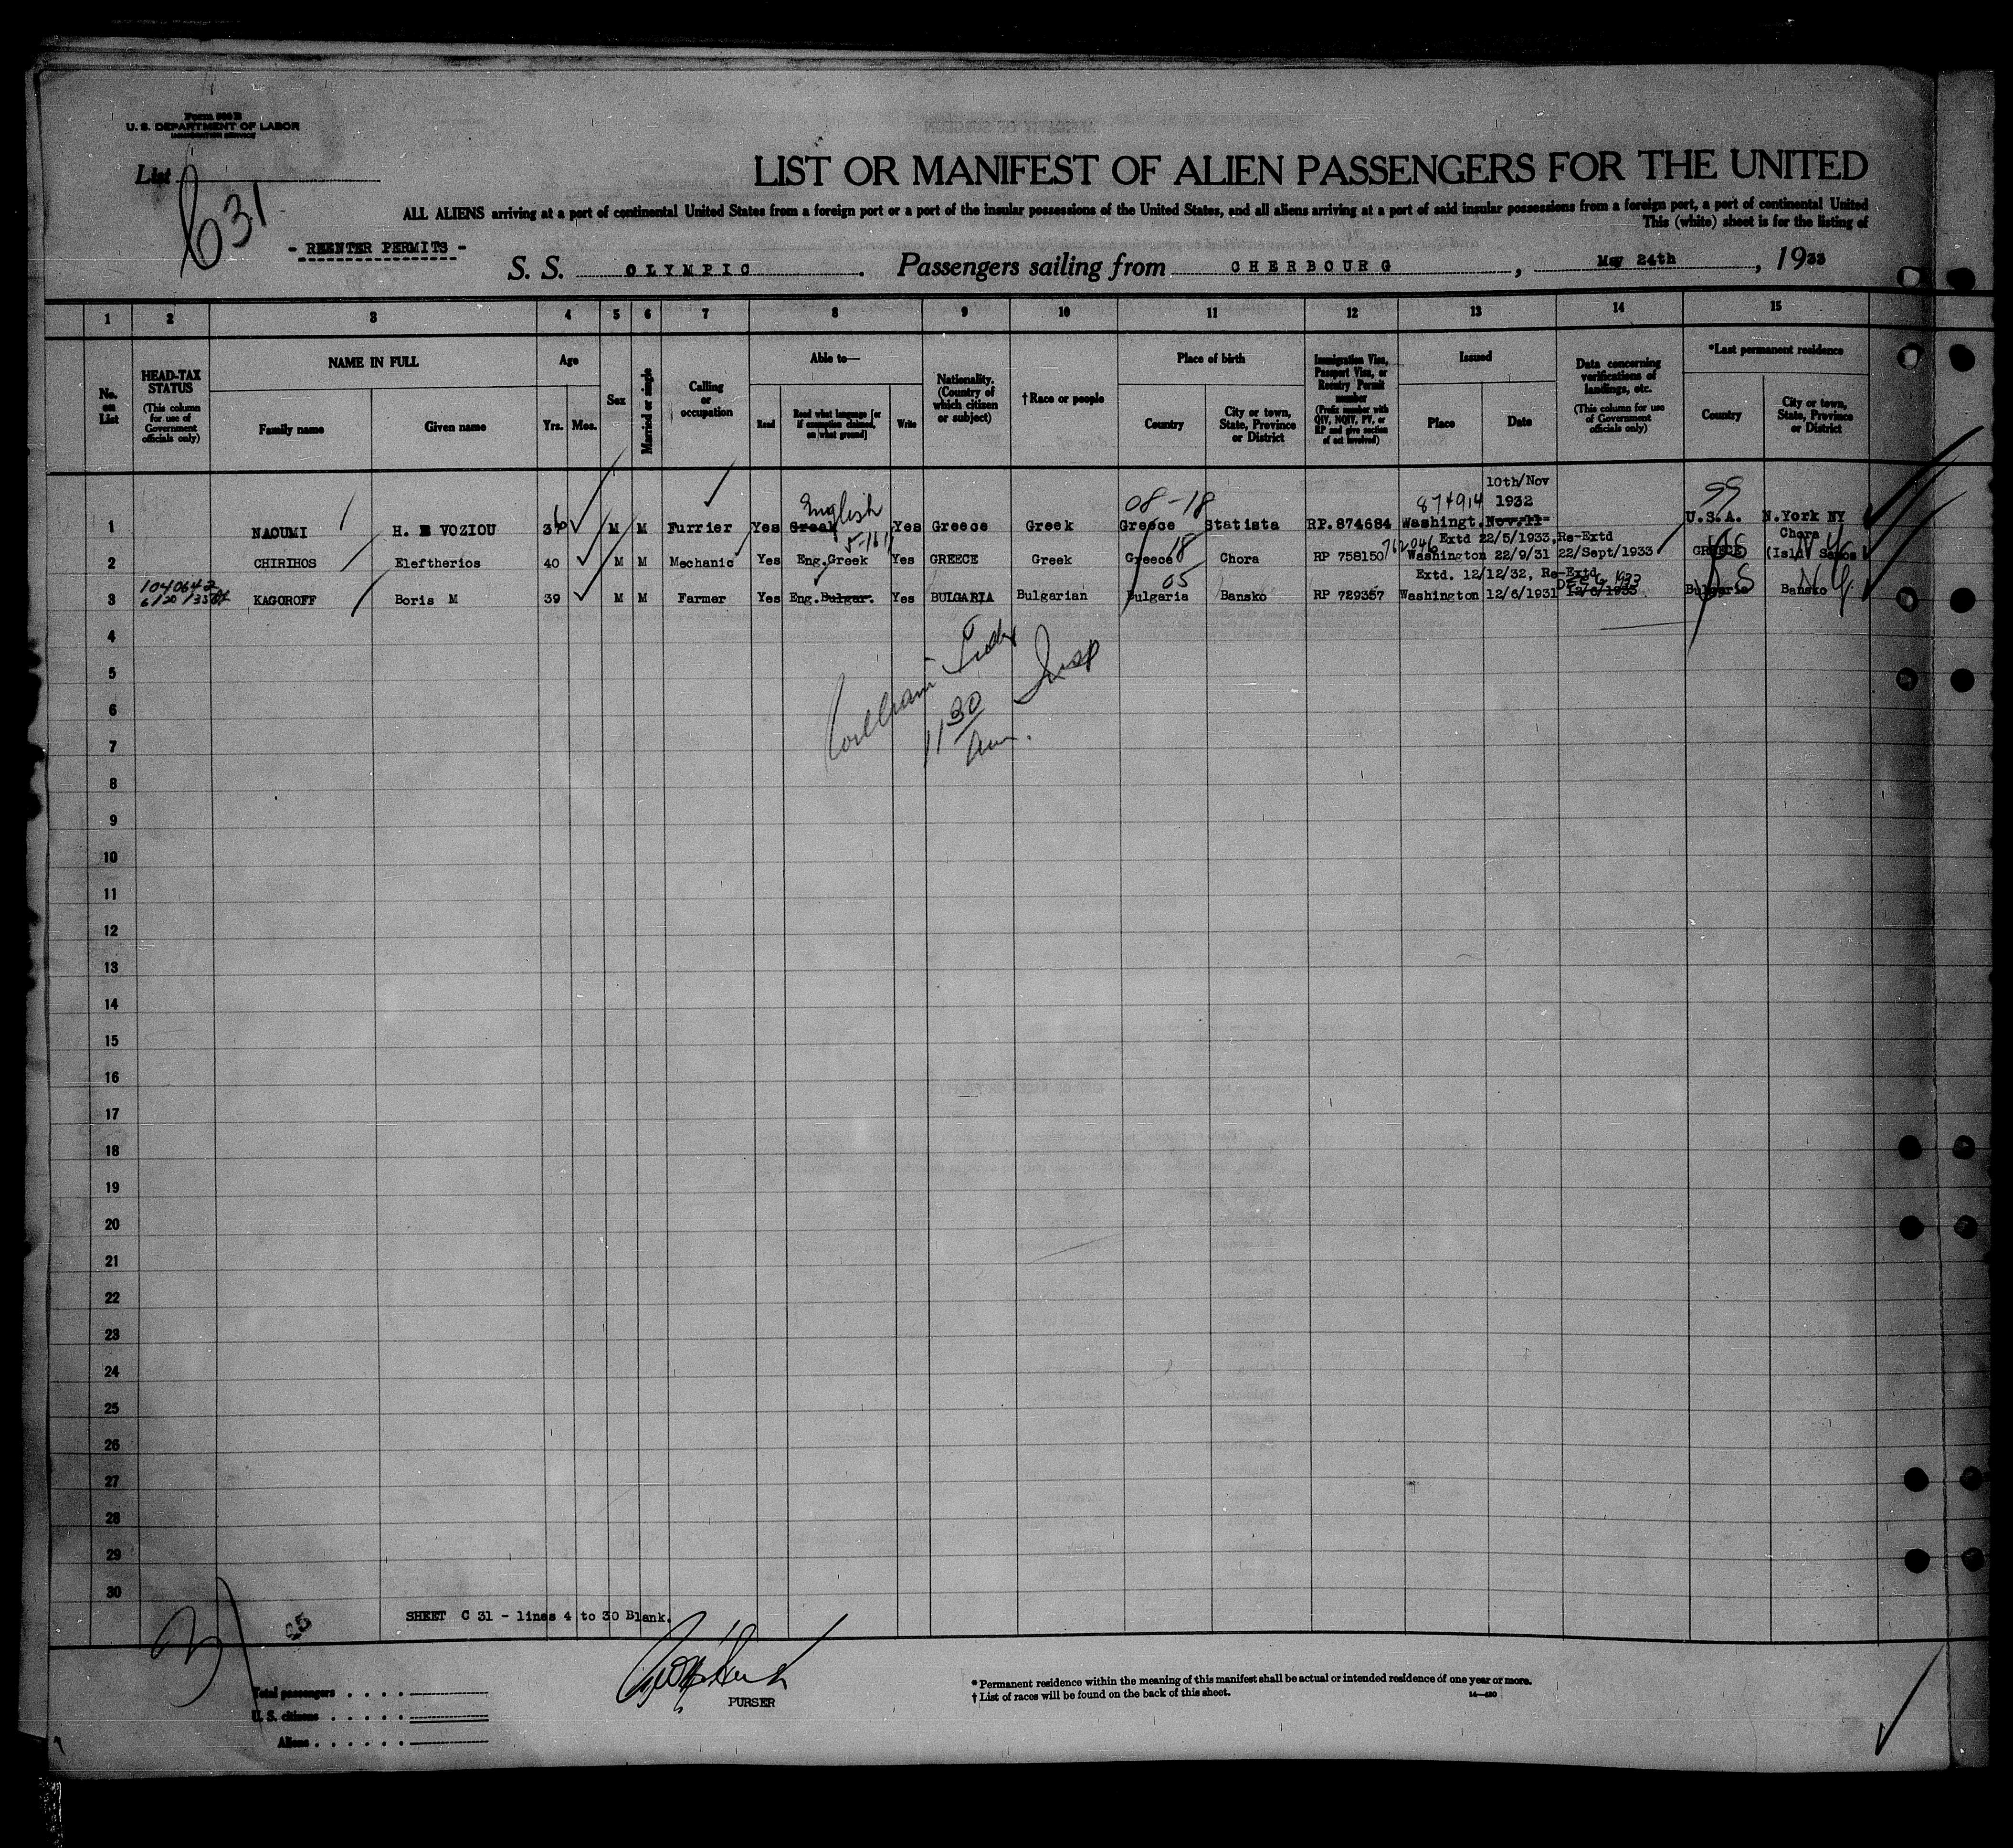 Form 500 B
U. S. DEPARTMENT OF LABOR
IMMIGRATION SERVICE
List
C 31
LIST OR MANIFEST OF ALIEN PASSENGERS FOR THE UNITED
ALL ALIENS arriving at a port of continental United States from a foreign port or a port of the insular possessions of the United States, and all aliens arriving at a port of said insular possessions from a foreign port, a port of continental United
This (white) sheet is for the listing of
- REENTER PERMITS -
S. S. OLYMPIC. Passengers sailing from CHERBOURG, May 24th, 1933
1 2 3 4 5 6 7 8 9 10 11 12 13 14 15
No. on List
HEAD-TAX STATUS (This column for use of Government officials only)
NAME IN FULL
Family name Given name
Age
Yrs. Mos.
Sex
Married or single
Calling or occupation
Able to—
Read Read what language [or if exemption claimed, on what ground] Write
Nationality. (Country of which citizen or subject)
†Race or people
Place of birth
Country City or town, State, Province or District
Immigration Visa, Passport Visa, or Reentry Permit number (Prefix number with QIV, NQIV, PV, or RP and give section of act involved)
Issued
Place Date
Data concerning verifications of landings, etc. (This column for use of Government officials only)
*Last permanent residence
Country City or town, State, Province or District
10th/Nov
English 08-18 874914 1932 99
1 NAOUMI H. VOZIOU 36 M M Furrier Yes Greek Yes Greece Greek Greece Statista RP.874684 Washingt. Nov.11- U.S.A. N.York NY
5-161 18 762046 Extd 22/5/1933, Re-Extd Chora
2 CHIRIHOS Eleftherios 40 M M Mechanic Yes Eng.Greek Yes GREECE Greek Greece Chora RP 758150 Washington 22/9/31 22/Sept/1933 GREECE US (Isld Samos NY
1040642 05 Extd. 12/12/32, Re-Extd
6/20/33 Dec 6 1933
3 KAGOROFF Boris M 39 M M Farmer Yes Eng.Bulgar. Yes BULGARIA Bulgarian Bulgaria Bansko RP 729357 Washington 12/6/1931 12/6/1933 Bulgaria US Bansko NY
4
5
William Insp
6
11 30
7
am.
8
9
10
11
12
13
14
15
16
17
18
19
20
21
22
23
24
25
26
27
28
29
30
SHEET C 31 - lines 4 to 30 Blank.
3
25
Total passengers
U. S. citizens
Aliens
PURSER
* Permanent residence within the meaning of this manifest shall be actual or intended residence of one year or more.
† List of races will be found on the back of this sheet.
14—430